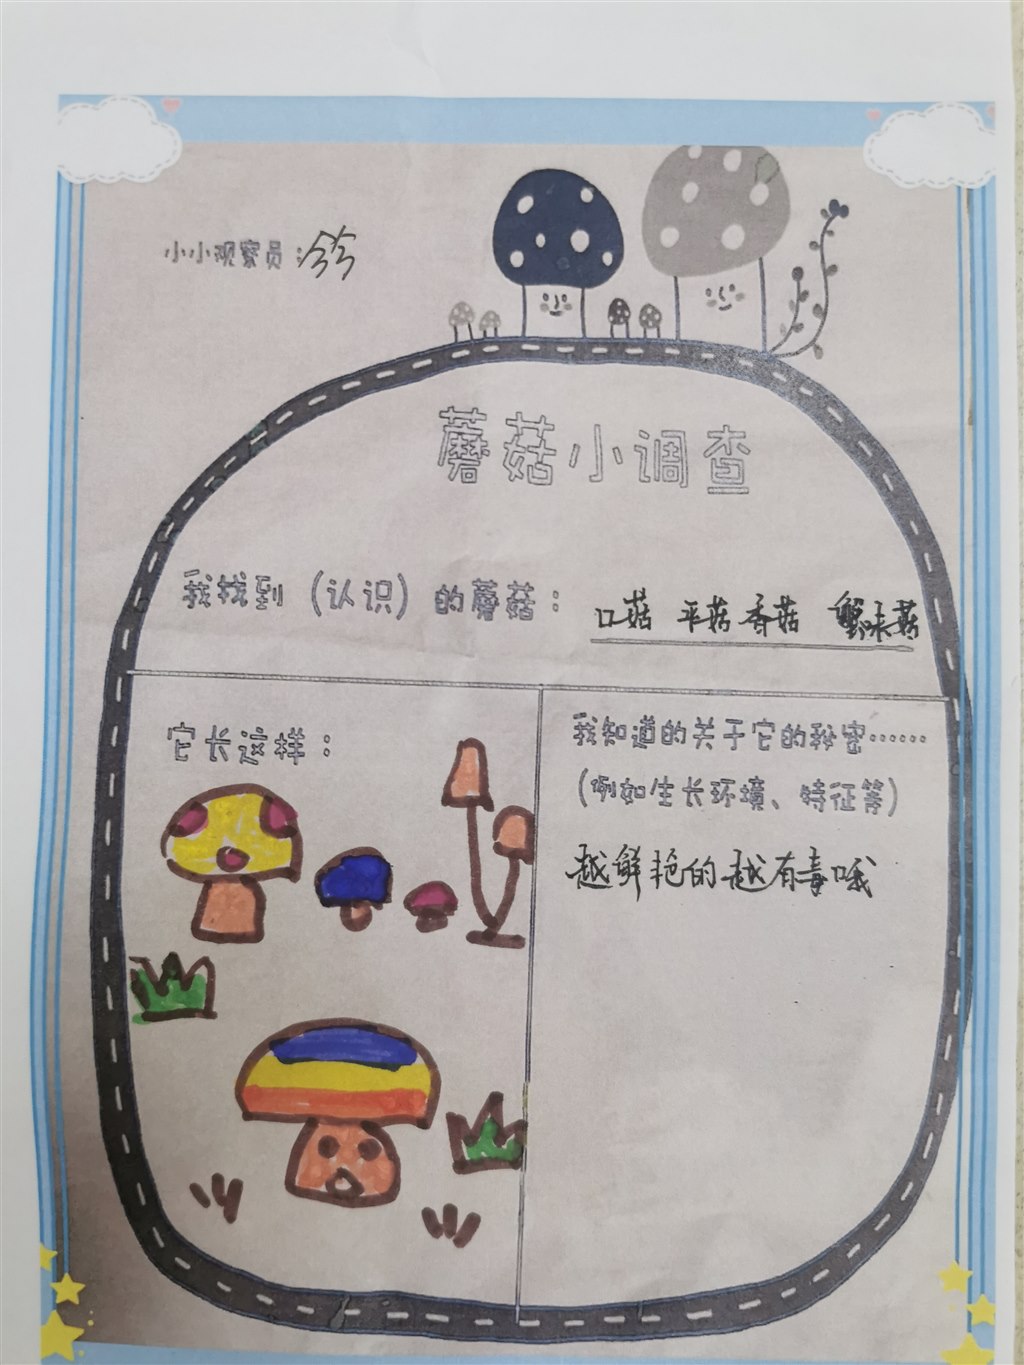 小小观察员：兮兮
蘑菇小调查
我找到（认识）的蘑菇：口菇 平菇 香菇 蟹味菇
它长这样：
我知道的关于它的秘密……
（例如生长环境、特征等）
越鲜艳的越有毒哦